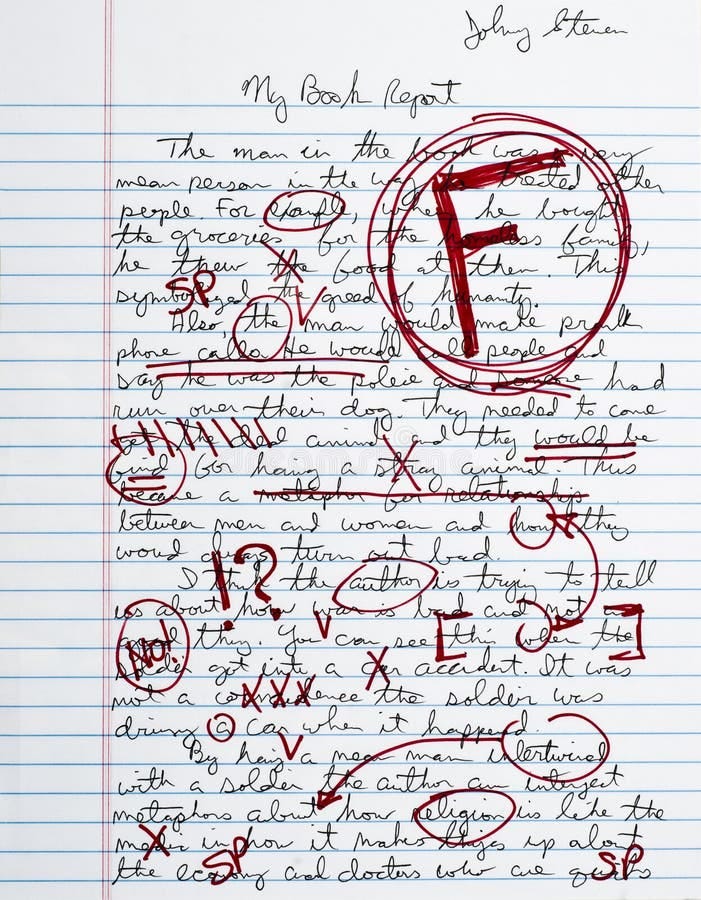 Johny Steven
My Book Report
The man in the book was a very
mean person in the way he treated other
people. For example, when he bought
the groceries for the homeless family,
he threw the food at them. This
SP
symbolized the greed of humanity.
Also, the man would make prank
phone calls. He would call people and
say he was the police and someone had
run over their dog. They needed to come
get the dead animal and they would be
fined for having a stray animal. Thus
became a metaphor for relationships
between men and women and how they
would always turn out bad.
!?
I think the author is trying to tell
us about how war is bad and not
a good thing. You can see this when the
No!
solder got into a car accident. It was
not a the solder was
driving a car when it happened.
By having a mean man intertwined
with a solder the author can interject
metaphors about how religion is like the
in how it makes things up about
SP
SP
the economy and doctors who are
F